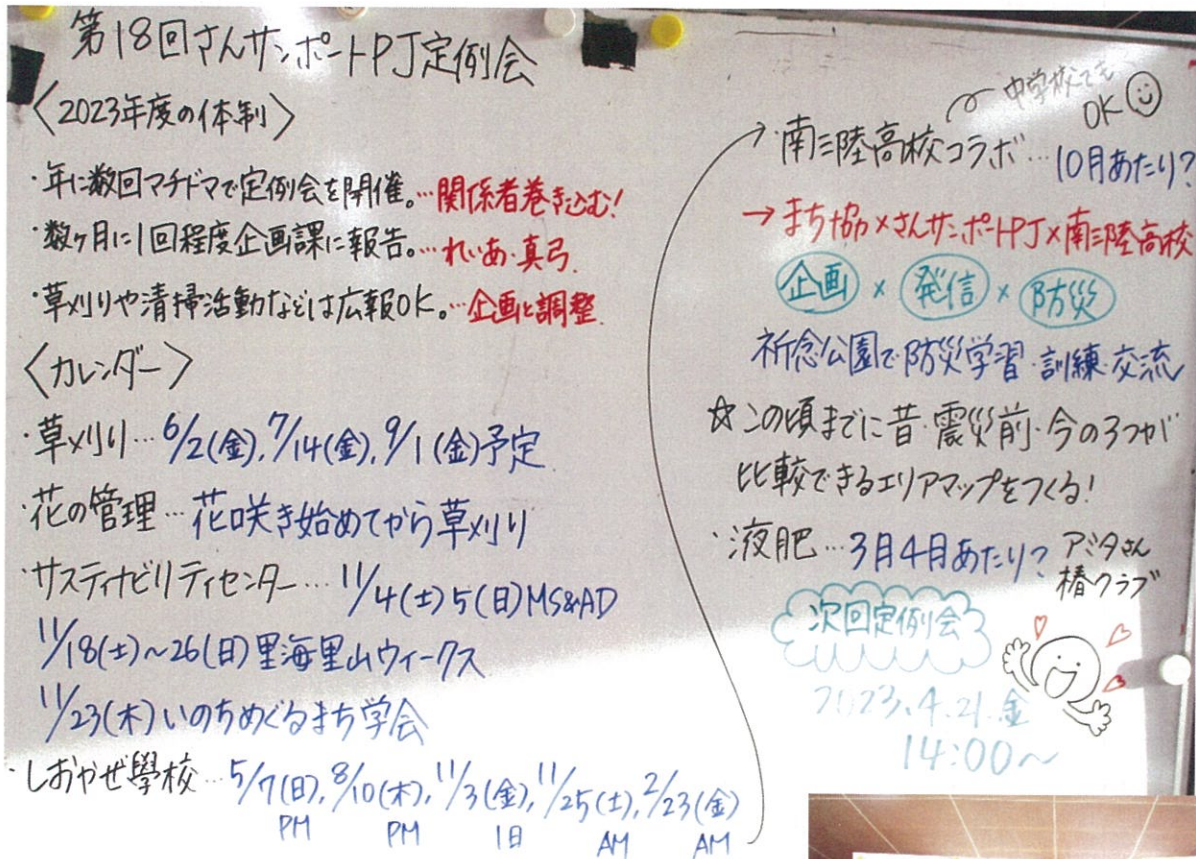 第18回さんサンポートPJ定例会
〈2023年度の体制〉
・年に数回マチドマで定例会を開催。…関係者巻き込む!
・数ヶ月に1回程度企画課に報告。…れいあ・真弓
・草刈りや清掃活動などは広報OK。…企画と調整
〈カレンダー〉
・草刈り…6/2(金),7/14(金),9/1(金)予定
・花の管理…花咲き始めてから草刈り
・サスティナビリティセンター…11/4(土)5(日)MS&AD
11/18(土)〜26(日)里海里山ウィークス
11/23(木)いのちめぐるまち学会
・しおかぜ學校…5/7(日),8/10(木),11/3(金),11/25(土),2/23(金)
PM PM 1日 AM AM
中学校でも
OK
・南三陸高校コラボ…10月あたり?
→まち協×さんサンポートPJ×南三陸高校
企画×発信×防災
祈念公園で防災学習・訓練・交流
☆この頃までに昔・震災前・今の3つが
比較できるエリアマップをつくる!
・液肥…3月4月あたり?アミタさん
椿クラブ
次回定例会
2023.4.21.金
14:00〜